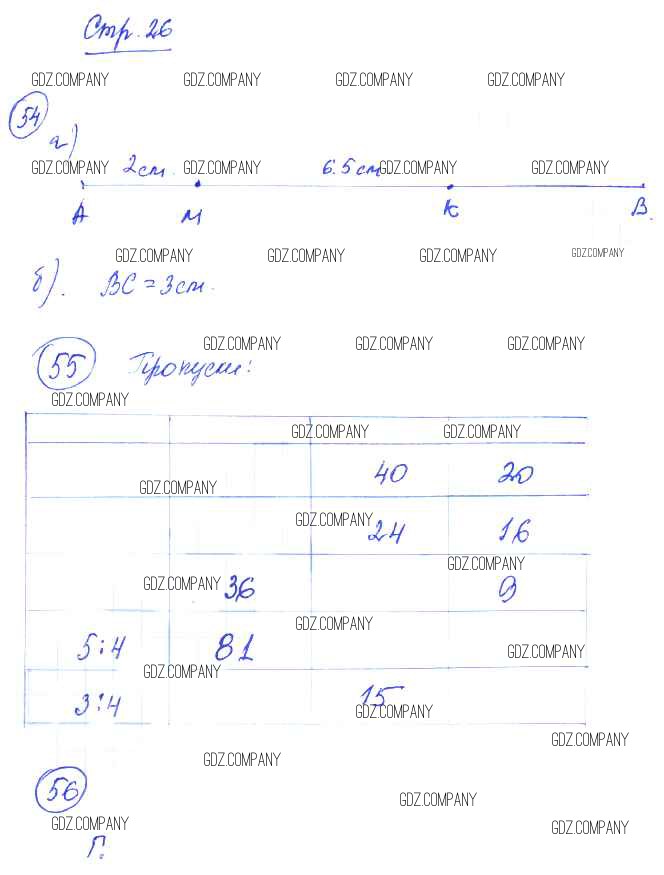 Стр. 26
GDZ.COMPANY GDZ.COMPANY GDZ.COMPANY GDZ.COMPANY
54
а)
GDZ.COMPANY 2см. GDZ.COMPANY 6.5см GDZ.COMPANY GDZ.COMPANY
A M K B.
GDZ.COMPANY GDZ.COMPANY GDZ.COMPANY GDZ.COMPANY
б). BC = 3см.
GDZ.COMPANY GDZ.COMPANY GDZ.COMPANY
55 Пропуски:
GDZ.COMPANY
GDZ.COMPANY GDZ.COMPANY
40 20
GDZ.COMPANY
GDZ.COMPANY
24 16
GDZ.COMPANY
GDZ.COMPANY 36 9
GDZ.COMPANY
5:4 81 GDZ.COMPANY
GDZ.COMPANY
3:4 15
GDZ.COMPANY
GDZ.COMPANY
GDZ.COMPANY
56
GDZ.COMPANY
GDZ.COMPANY GDZ.COMPANY
Г.